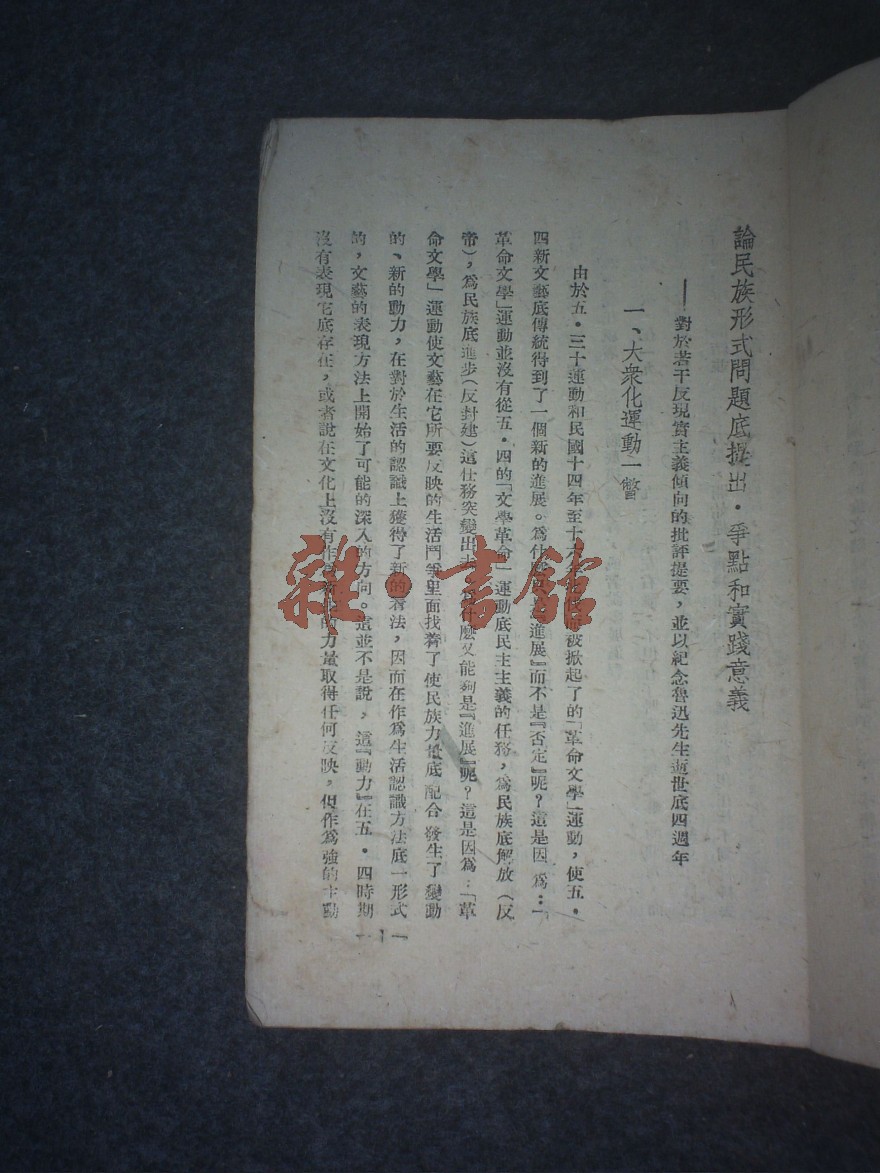 論民族形式問題底提出·爭點和實踐意義
——對於若干反現實主義傾向的批評提要，並以紀念魯迅先生逝世底四週年
一、大衆化運動一瞥
由於五·三十運動和民國十四年至十六年 被掀起了的「革命文學」運動，使五·
四新文藝底傳統得到了一個新的進展。爲什麼 『進展』而不是『否定』呢？這是因爲：「
革命文學」運動並沒有從五·四的「文學革命」運動底民主主義的任務，爲民族底解放（反
帝），爲民族底進步（反封建）這任務突變出去 什麼又能夠是『進展』呢？這是因爲：「革
命文學」運動使文藝在它所要反映的生活鬥爭里面找着了使民族力量底配合發生了變動
的、新的動力，在對於生活的認識上獲得了新的看法，因而在作爲生活認識方法底一形式
的，文藝的表現方法上開始了可能的深入的方向。這並不是說，這『動力』在五·四時期
沒有表現它底存在，或者說在文化上沒有作爲 的力量取得任何反映，但作爲強的主動
— 1 —
雜·書館